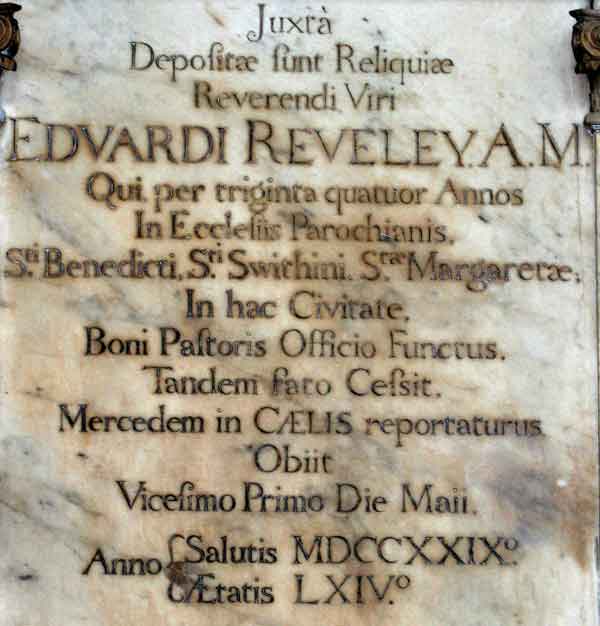 Juxtà
Depoſitæ ſunt Reliquiæ
Reverendi Viri
EDVARDI REVELEY. A. M.
Qui, per triginta quatuor Annos
In Eccleſiis Parochianis,
S.ti Benedicti, S.ti Swithini, S.tæ Margaretæ,
In hac Civitate,
Boni Paſtoris Officio Functus,
Tandem fato Ceſsit,
Mercedem in CÆLIS reportaturus
Obiit
Viceſimo Primo Die Maii,
Anno { Salutis MDCCXXIX.º
Ætatis LXIV.º